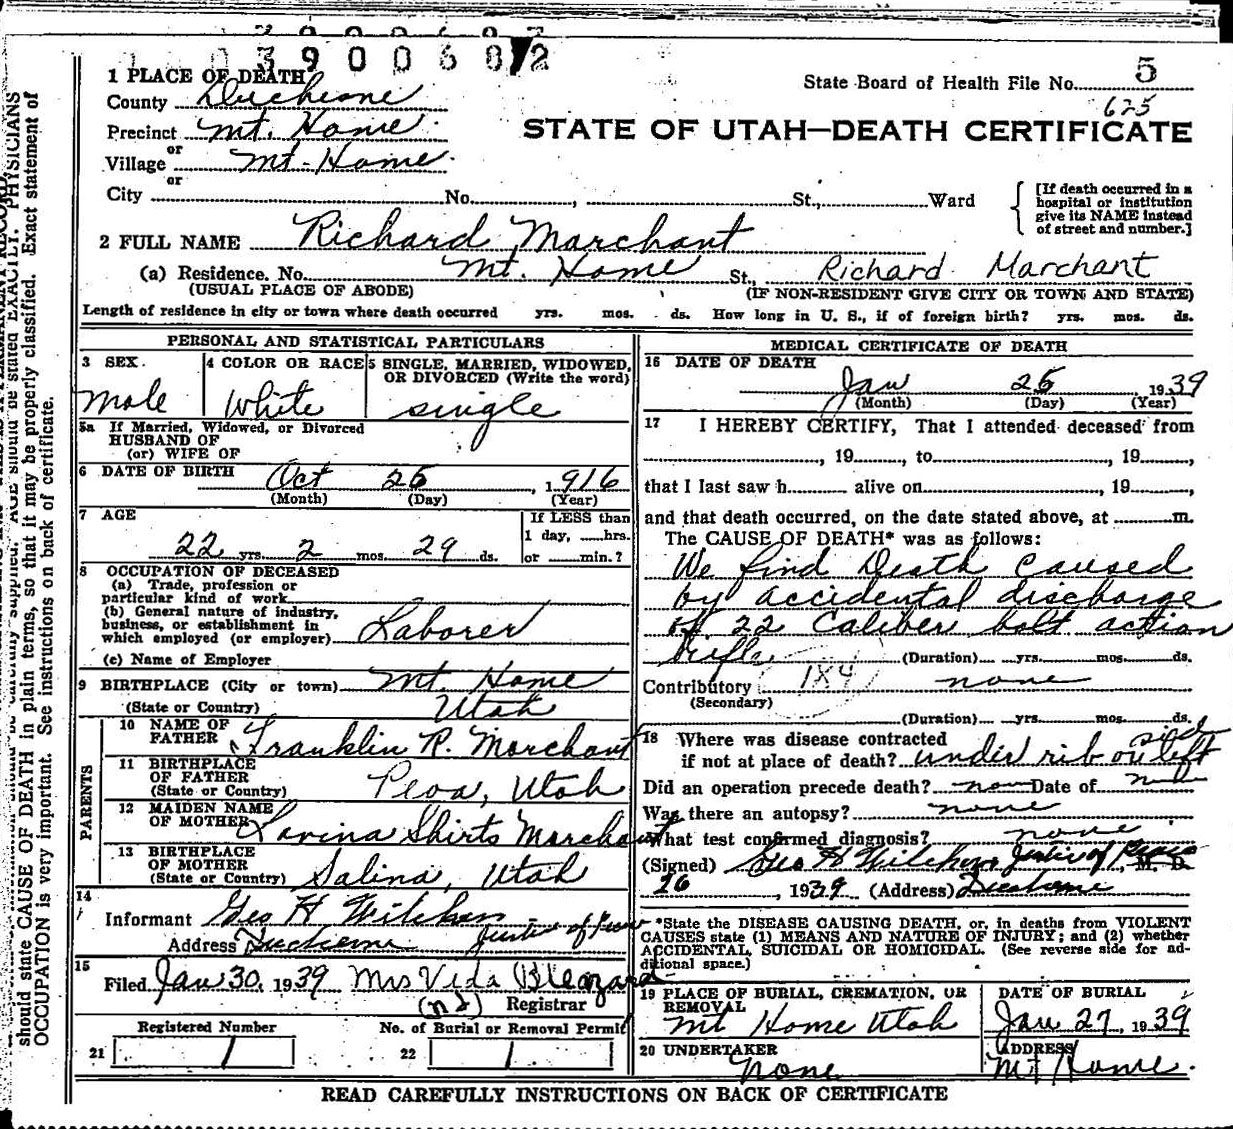 3900682
1 PLACE OF DEATH
State Board of Health File No. 5
625
County Duchesne
STATE OF UTAH—DEATH CERTIFICATE
Precinct Mt. Home
or
Village Mt. Home.
or
City No. , St., Ward
[If death occurred in a hospital or institution give its NAME instead of street and number.]
2 FULL NAME Richard Marchant
(a) Residence. No. Mt. Home St., Richard Marchant
(USUAL PLACE OF ABODE) (IF NON-RESIDENT GIVE CITY OR TOWN AND STATE)
Length of residence in city or town where death occurred yrs. mos. ds. How long in U. S., if of foreign birth? yrs. mos. ds.
PERSONAL AND STATISTICAL PARTICULARS
3 SEX 4 COLOR OR RACE 5 SINGLE, MARRIED, WIDOWED, OR DIVORCED (Write the word)
male White single
5a If Married, Widowed, or Divorced
HUSBAND OF
(or) WIFE OF
6 DATE OF BIRTH Oct 26, 1916
(Month) (Day) (Year)
7 AGE If LESS than
1 day, hrs.
22 yrs. 2 mos. 29 ds. or min.?
8 OCCUPATION OF DECEASED
(a) Trade, profession or
particular kind of work
(b) General nature of industry,
business, or establishment in
which employed (or employer) Laborer
(c) Name of Employer
9 BIRTHPLACE (City or town) Mt. Home
(State or Country) Utah
PARENTS
10 NAME OF FATHER Franklin R. Marchant
11 BIRTHPLACE OF FATHER
(State or Country) Peoa, Utah
12 MAIDEN NAME OF MOTHER Lovina Shirts Marchant
13 BIRTHPLACE OF MOTHER
(State or Country) Salina, Utah
14
Informant Geo H Wilcken
Address Duchesne Justice of Peace
15
Filed Jan 30, 1939 Mrs Vida Bleazard
Registrar
Registered Number No. of Burial or Removal Permit
21 1 22 1
MEDICAL CERTIFICATE OF DEATH
16 DATE OF DEATH
Jan 25 1939
(Month) (Day) (Year)
17 I HEREBY CERTIFY, That I attended deceased from
, 19 , to , 19 ,
that I last saw h alive on , 19 ,
and that death occurred, on the date stated above, at m.
The CAUSE OF DEATH* was as follows:
We find Death Caused
by accidental discharge
of. 22 Caliber bolt action
rifle. (Duration) yrs. mos. ds.
Contributory 184 none
(Secondary)
(Duration) yrs. mos. ds.
18 Where was disease contracted side
if not at place of death? under rib on left
Did an operation precede death? no Date of
Was there an autopsy? none
What test confirmed diagnosis? none
(Signed) Geo H Wilcken Justice of Peace, M. D.
26, 1939 (Address) Duchesne
*State the DISEASE CAUSING DEATH, or, in deaths from VIOLENT
CAUSES state (1) MEANS AND NATURE OF INJURY; and (2) whether
ACCIDENTAL, SUICIDAL OR HOMICIDAL. (See reverse side for additional space.)
19 PLACE OF BURIAL, CREMATION, OR REMOVAL DATE OF BURIAL
Mt Home Utah Jan 27, 1939
20 UNDERTAKER ADDRESS
none Mt Home.
READ CAREFULLY INSTRUCTIONS ON BACK OF CERTIFICATE
should state CAUSE OF DEATH in plain terms, so that it may be properly classified. Exact statement of
OCCUPATION is very important. See instructions on back of certificate.